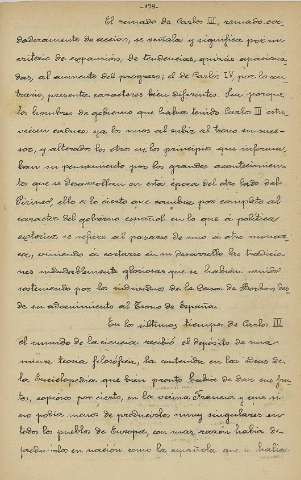 -178-
El reinado de Carlos III, reinado ver-
daderamente de acción, se señala y significa por un
criterio de expansión, de tendencias, quizás apasiona-
das, al aumento del progreso; el de Carlos IV, por lo con-
trario, presenta caracteres bien diferentes. Sea porque
los hombres de gobierno que había tenido Carlos III estu-
vieran ya los unos al subir al trono su suce-
sor, y alterados los otros en los principios que informa-
ban su pensamiento por los grandes acontecimien-
tos que se desarrollan en esta época del otro lado del
Pirineo, ello es lo cierto que cambia por completo el
carácter del gobierno español en lo que á política
exterior se refiere al pasarse de uno á otro monar-
ca, viniendo á cortarse en su desarrollo las tradicio-
nes indudablemente gloriosas que se habían venido
sosteniendo por los individuos de la Casa de Borbón des-
de su advenimiento al Trono de España.
En los últimos tiempos de Carlos III
el mundo de la ciencia recibió el depósito de una
nueva teoría filosófica, la contenida en las ideas de
la Enciclopedia que bien pronto había de dar sus fru-
tos, copiosos por cierto, en la vecina Francia y que si
no podía menos de producirlos muy singulares en
todos los pueblos de Europa, con más razón había de
producirlos en nación como la española que se había